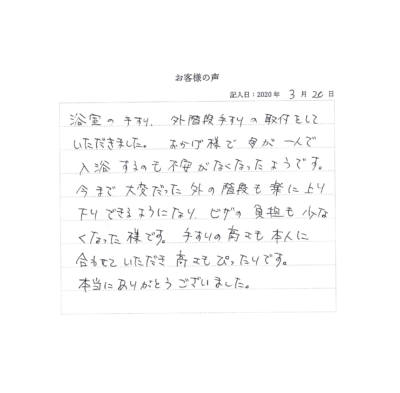 お客様の声
記入日：2020年 3月 20日
浴室の手すり、外階段手すりの取付をして
いただきました。 おかげ様で 母が一人で
入浴するのも不安がなくなったようです。
今まで大変だった外の階段も楽に上り
下りできるようになり、ヒザの負担も少な
くなった様です。 手すりの高さも本人に
合わせていただき高さもぴったりです。
本当にありがとうございました。